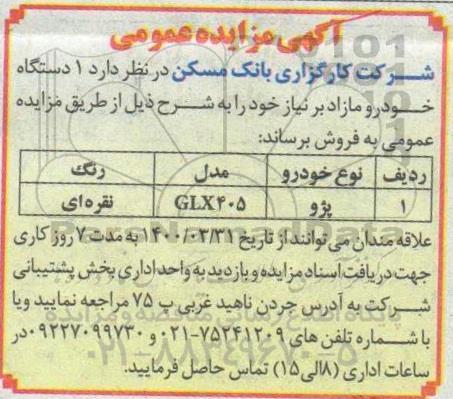 آگهی مزایده عمومی
شرکت کارگزاری بانک مسکن در نظر دارد ۱ دستگاه
خودرو مازاد بر نیاز خود را به شرح ذیل از طریق مزایده
عمومی به فروش برساند:
ردیف نوع خودرو مدل رنگ
۱ پژو GLX۴۰۵ نقره‌ای
علاقه مندان می توانند از تاریخ ۱۴۰۰/۰۳/۳۱ به مدت ۷ روز کاری
جهت دریافت اسناد مزایده و بازدید به واحد اداری بخش پشتیبانی
شرکت به آدرس جردن ناهید غربی پ ۷۵ مراجعه نمایید ویا
با شماره تلفن های ۷۵۲۴۱۲۰۹-۰۲۱ و ۰۹۲۲۷۰۹۹۷۳۰ در
ساعات اداری (۸الی۱۵) تماس حاصل فرمایید.
ParsNamadData
۰۲۱-۸۸۳۴۹۶۷۰-۵